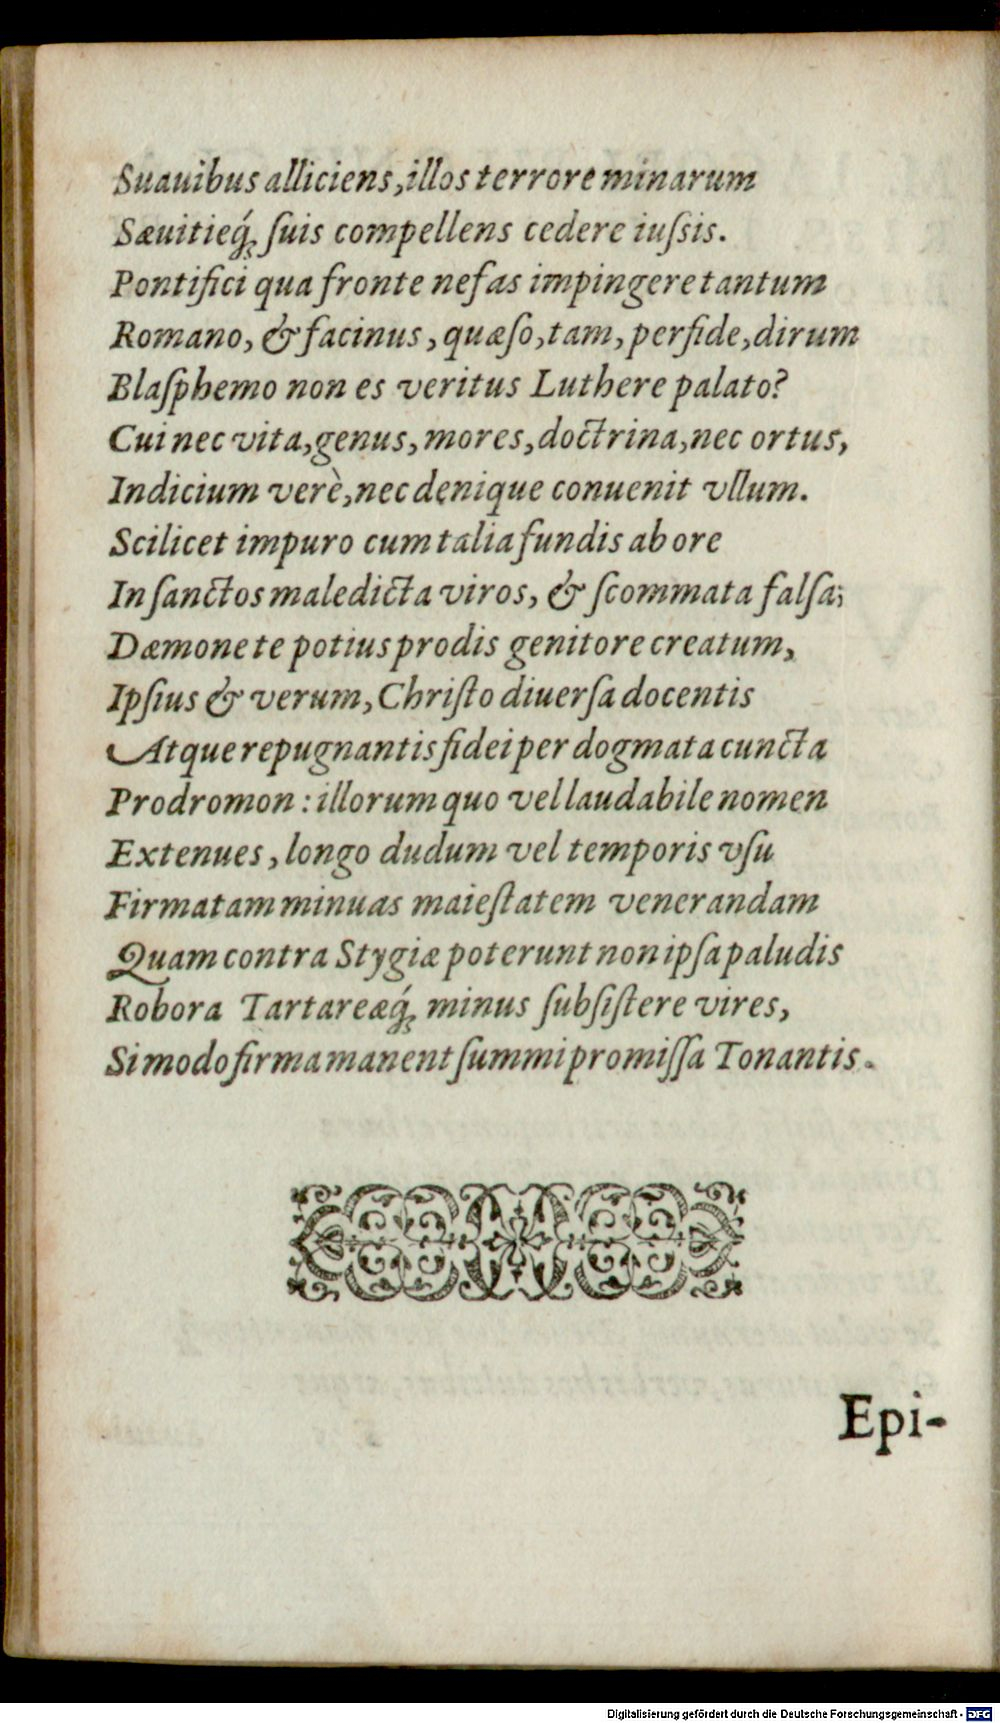 Suauibus alliciens, illos terrore minarum
Sæuitieq́ꝫ ſuis compellens cedere iuſsis.
Pontifici qua fronte nefas impingere tantum
Romano, & facinus, quæſo, tam, perfide, dirum
Blaſphemo non es veritus Luthere palato?
Cui nec vita, genus, mores, doctrina, nec ortus,
Indicium verè, nec denique conuenit vllum.
Scilicet impuro cum talia fundis ab ore
In ſanctos maledicta viros, & ſcommata falſa;
Dæmone te potius prodis genitore creatum,
Ipſius & verum, Chriſto diuerſa docentis
Atque repugnantis fidei per dogmata cuncta
Prodromon: illorum quo vel laudabile nomen
Extenues, longo dudum vel temporis vſu
Firmatam minuas maieſtatem venerandam
Quam contra Stygiæ poterunt non ipſa paludis
Robora Tartareæq́ꝫ minus ſubſiſtere vires,
Si modo firma manent ſummi promiſſa Tonantis.
Epi-
Digitalisierung gefördert durch die Deutsche Forschungsgemeinschaft - DFG